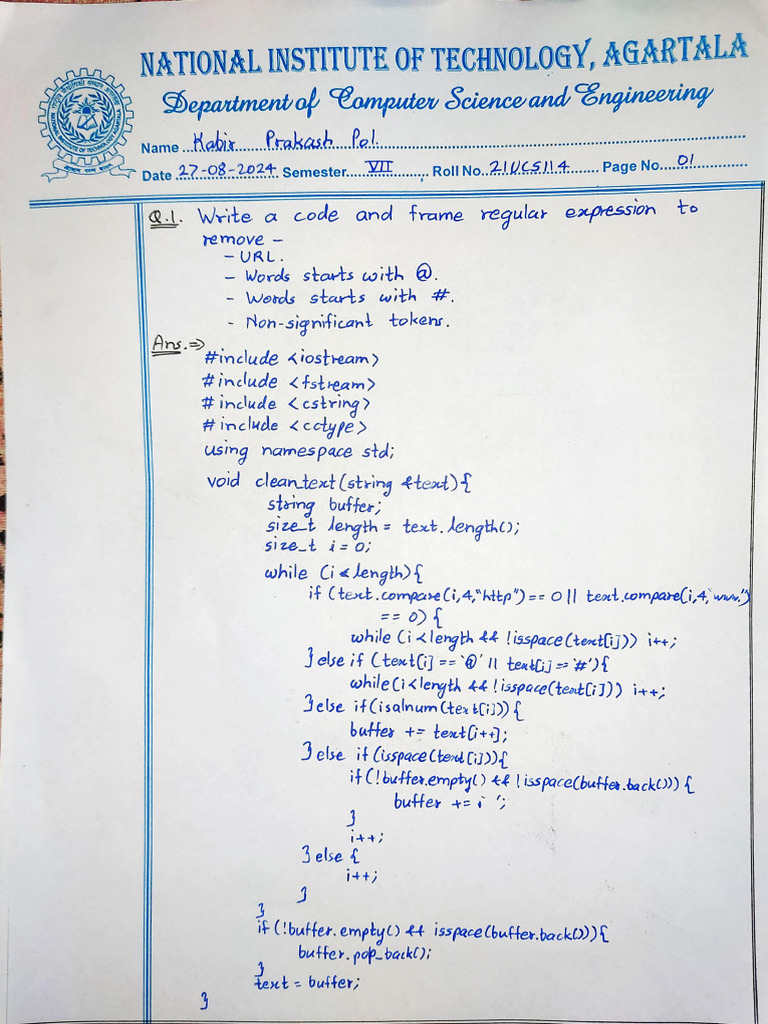 NATIONAL INSTITUTE OF TECHNOLOGY, AGARTALA
Department of Computer Science and Engineering
Name Kabir Prakash Pol.
Date 27-08-2024 Semester VII Roll No. 21UCS114 Page No. 01
Q.1. Write a code and frame regular expression to
remove -
- URL.
- Words starts with @.
- Words starts with #.
- Non-significant tokens.
Ans.⇒
#include <iostream>
#include <fstream>
#include <cstring>
#include <cctype>
using namespace std;
void clean_text(string &text){
string buffer;
size_t length = text.length();
size_t i = 0;
while (i < length){
if (text.compare(i,4,"http") == 0 || text.compare(i,4,"www.")
== 0) {
while (i < length && !isspace(text[i])) i++;
} else if (text[i] == '@' || text[i] == '#'){
while(i < length && !isspace(text[i])) i++;
} else if(isalnum(text[i])) {
buffer += text[i++];
} else if (isspace(text[i])){
if(!buffer.empty() && !isspace(buffer.back())) {
buffer += ' ';
}
i++;
} else {
i++;
}
}
if (!buffer.empty() && isspace(buffer.back())){
buffer.pop_back();
}
text = buffer;
}